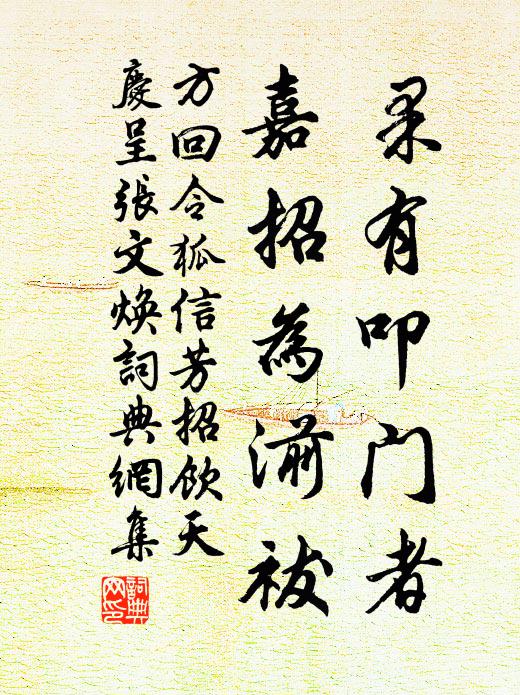 果有叩门者
嘉招為湔祓
方回令狐信芳招飲天
慶呈張文煥詞典網集
詞典
网印